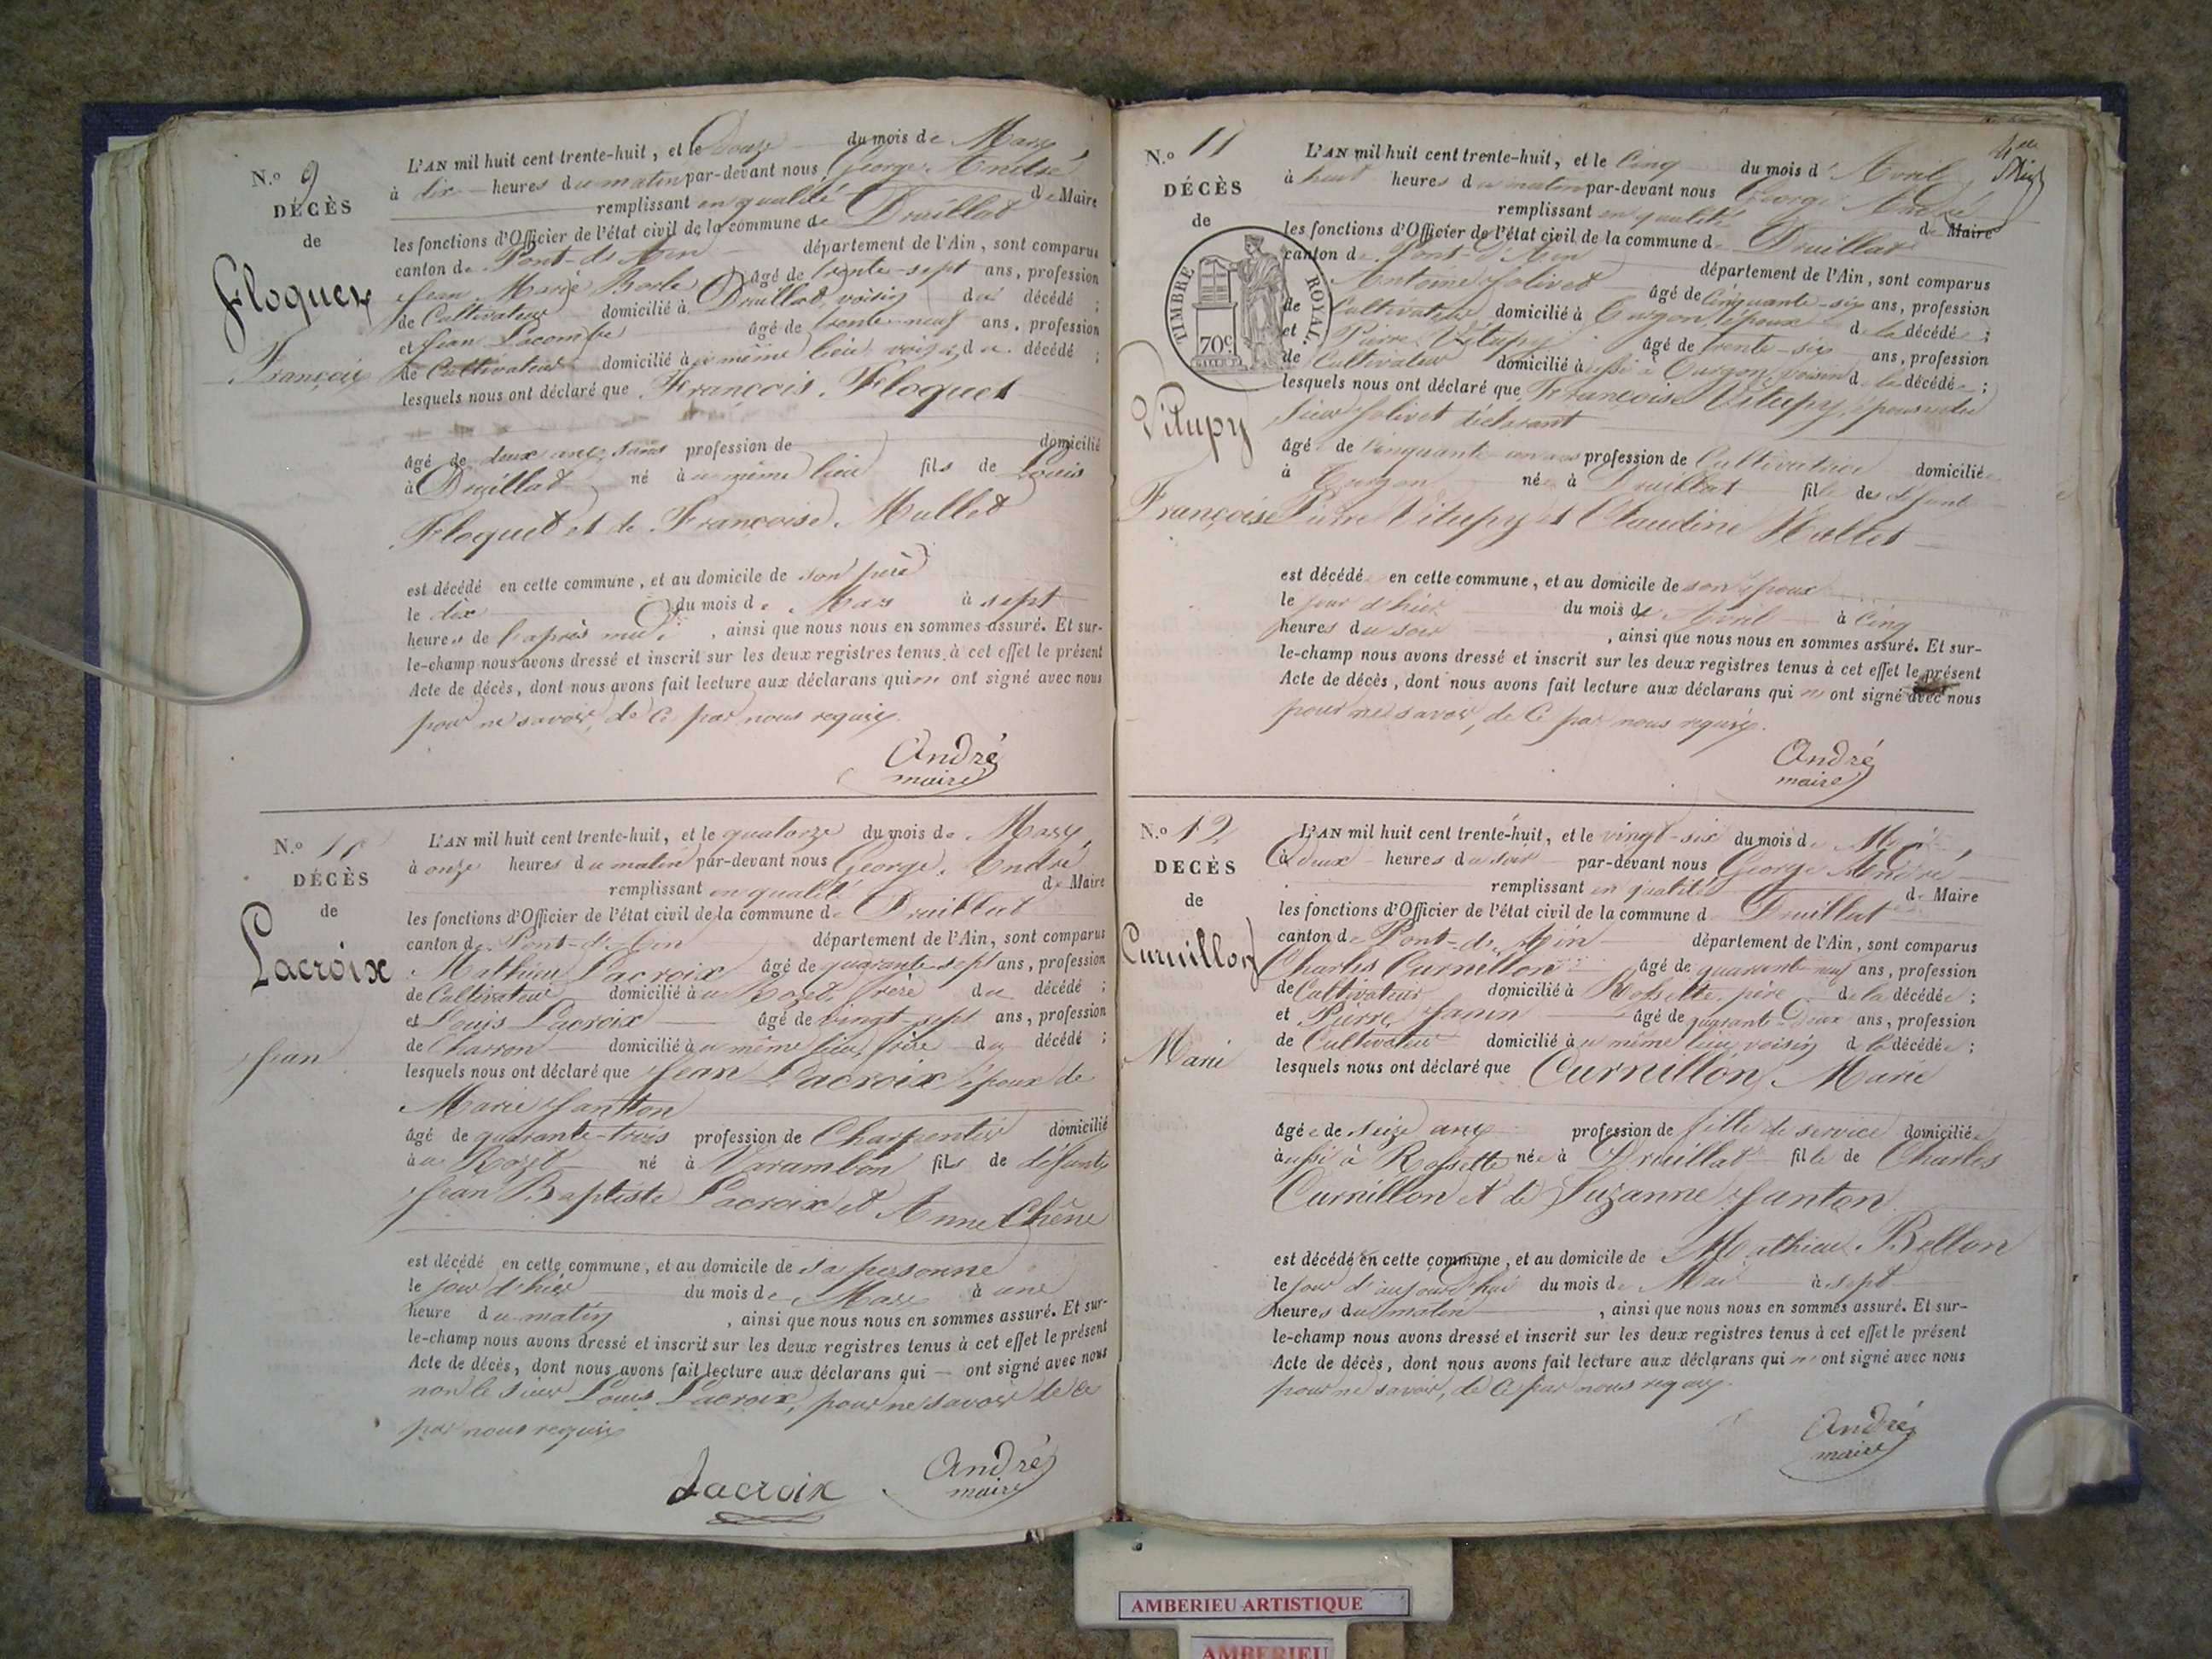 N.o 9
DÉCÈS
de
Floquet
François
L'AN mil huit cent trente-huit, et le Douze du mois de Mars
à dix heures du matin par-devant nous George André
remplissant en qualité de Maire
les fonctions d'Officier de l'état civil de la commune de Druillat
canton de Pont-d'Ain département de l'Ain, sont comparus
Jean Marie âgé de trente-sept ans, profession
de Cultivateur domicilié à Druillat, voisin du décédé ;
et Jean Lacombe âgé de trente-neuf ans, profession
de Cultivateur domicilié au même lieu voisin du décédé ;
lesquels nous ont déclaré que François Floquet
âgé de deux ans, sans profession de domicilié
à Druillat né au même lieu fils de Louis
Floquet et de Françoise Mallet
est décédé en cette commune, et au domicile de son père
le dix du mois de Mars à sept
heures de l'après midi, ainsi que nous nous en sommes assuré. Et sur-
le-champ nous avons dressé et inscrit sur les deux registres tenus à cet effet le présent
Acte de décès, dont nous avons fait lecture aux déclarans qui n' ont signé avec nous
pour ne savoir, de ce par nous requis.
André
maire
N.o 10
DÉCÈS
de
Lacroix
Jean
L'AN mil huit cent trente-huit, et le quatorze du mois de Mars,
à onze heures du matin par-devant nous George André
remplissant en qualité de Maire
les fonctions d'Officier de l'état civil de la commune de Druillat
canton de Pont-d'Ain département de l'Ain, sont comparus
Mathieu Lacroix âgé de quarante-sept ans, profession
de Cultivateur domicilié au Rozet, frère du décédé ;
et Louis Lacroix âgé de vingt-sept ans, profession
de Charron domicilié au même lieu, frère du décédé ;
lesquels nous ont déclaré que Jean Lacroix époux de
Marie Janton
âgé de quarante-trois profession de Charpentier domicilié
au Rozet né à Varambon fils de défunts
Jean Baptiste Lacroix et Anne Chêne
est décédé en cette commune, et au domicile de sa personne
le jour d'hier du mois de Mars à une
heure du matin, ainsi que nous nous en sommes assuré. Et sur-
le-champ nous avons dressé et inscrit sur les deux registres tenus à cet effet le présent
Acte de décès, dont nous avons fait lecture aux déclarans qui — ont signé avec nous
non le sieur Louis Lacroix, pour ne savoir de ce
par nous requis
Lacroix
André
maire
N.o 11
DÉCÈS
de
TIMBRE ROYAL
70c
Vitupy
Françoise
L'AN mil huit cent trente-huit, et le Cinq du mois d'Avril,
à huit heures du matin par-devant nous George André
remplissant en qualité de Maire
les fonctions d'Officier de l'état civil de la commune de Druillat
canton de Pont-d'Ain département de l'Ain, sont comparus
Antoine Jolivet âgé de Cinquante-six ans, profession
de Cultivateur domicilié à Turgon, époux de la décédée ;
et Pierre Vitupy âgé de trente-six ans, profession
de Cultivateur domicilié aussi à Turgon, voisin de la décédée ;
lesquels nous ont déclaré que Françoise Vitupy, épouse du
sieur Jolivet déclarant
âgée de Cinquante un ans profession de Cultivatrice domiciliée
à Turgon née à Druillat fille des défunts
Pierre Vitupy et Claudine Mallet
est décédé en cette commune, et au domicile de son époux
le jour d'hier du mois de Avril à Cinq
heures du soir, ainsi que nous nous en sommes assuré. Et sur-
le-champ nous avons dressé et inscrit sur les deux registres tenus à cet effet le présent
Acte de décès, dont nous avons fait lecture aux déclarans qui n' ont signé avec nous
pour ne savoir, de ce par nous requis.
André
maire
N.o 12
DECÈS
de
Curnillon
Marie
L'AN mil huit cent trente-huit, et le vingt-six du mois de Mai,
à deux heures du soir par-devant nous George André
remplissant en qualité de Maire
les fonctions d'Officier de l'état civil de la commune de Druillat
canton de Pont-d'Ain département de l'Ain, sont comparus
Charles Curnillon âgé de quarante neuf ans, profession
de Cultivateur domicilié à Rossette père de la décédée ;
et Pierre Janin âgé de quarante-Deux ans, profession
de Cultivateur domicilié au même lieu, voisin de la décédée ;
lesquels nous ont déclaré que Curnillon, Marie
âgée de seize ans profession de fille de service domiciliée
aussi à Rossette née à Druillat fille de Charles
Curnillon et de Suzanne Janton
est décédé en cette commune, et au domicile de Mathieu Bellon
le jour d'aujourd'hui du mois de Mai à sept
heures du matin, ainsi que nous nous en sommes assuré. Et sur-
le-champ nous avons dressé et inscrit sur les deux registres tenus à cet effet le présent
Acte de décès, dont nous avons fait lecture aux déclarans qui n' ont signé avec nous
pour ne savoir, de ce par nous requis.
André
maire
AMBERIEU ARTISTIQUE
AMBERIEU